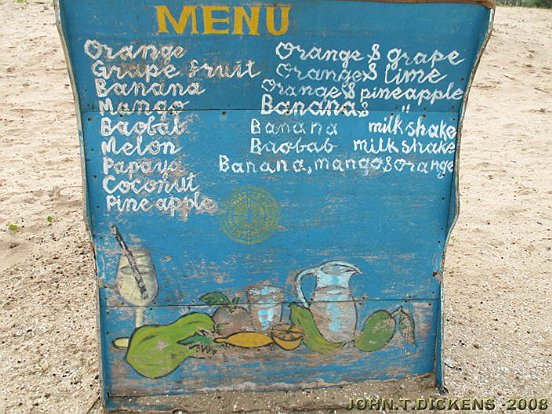 MENU
Orange
Grape fruit
Banana
Mango
Baobab
Melon
Papaya
Coconut
Pineapple
Orange & grape
Orange & lime
Orange & pineapple
Banana & "
Banana milkshake
Baobab milkshake
Banana, mango & orange
JOHN.T.DICKENS 2008